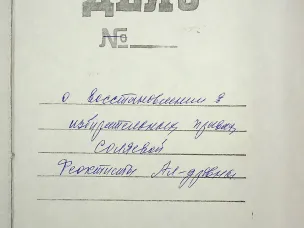 ДЕЛО
№
о восстановлении в
избирательных правах
Солявой
Феоктисты Ал-дровны